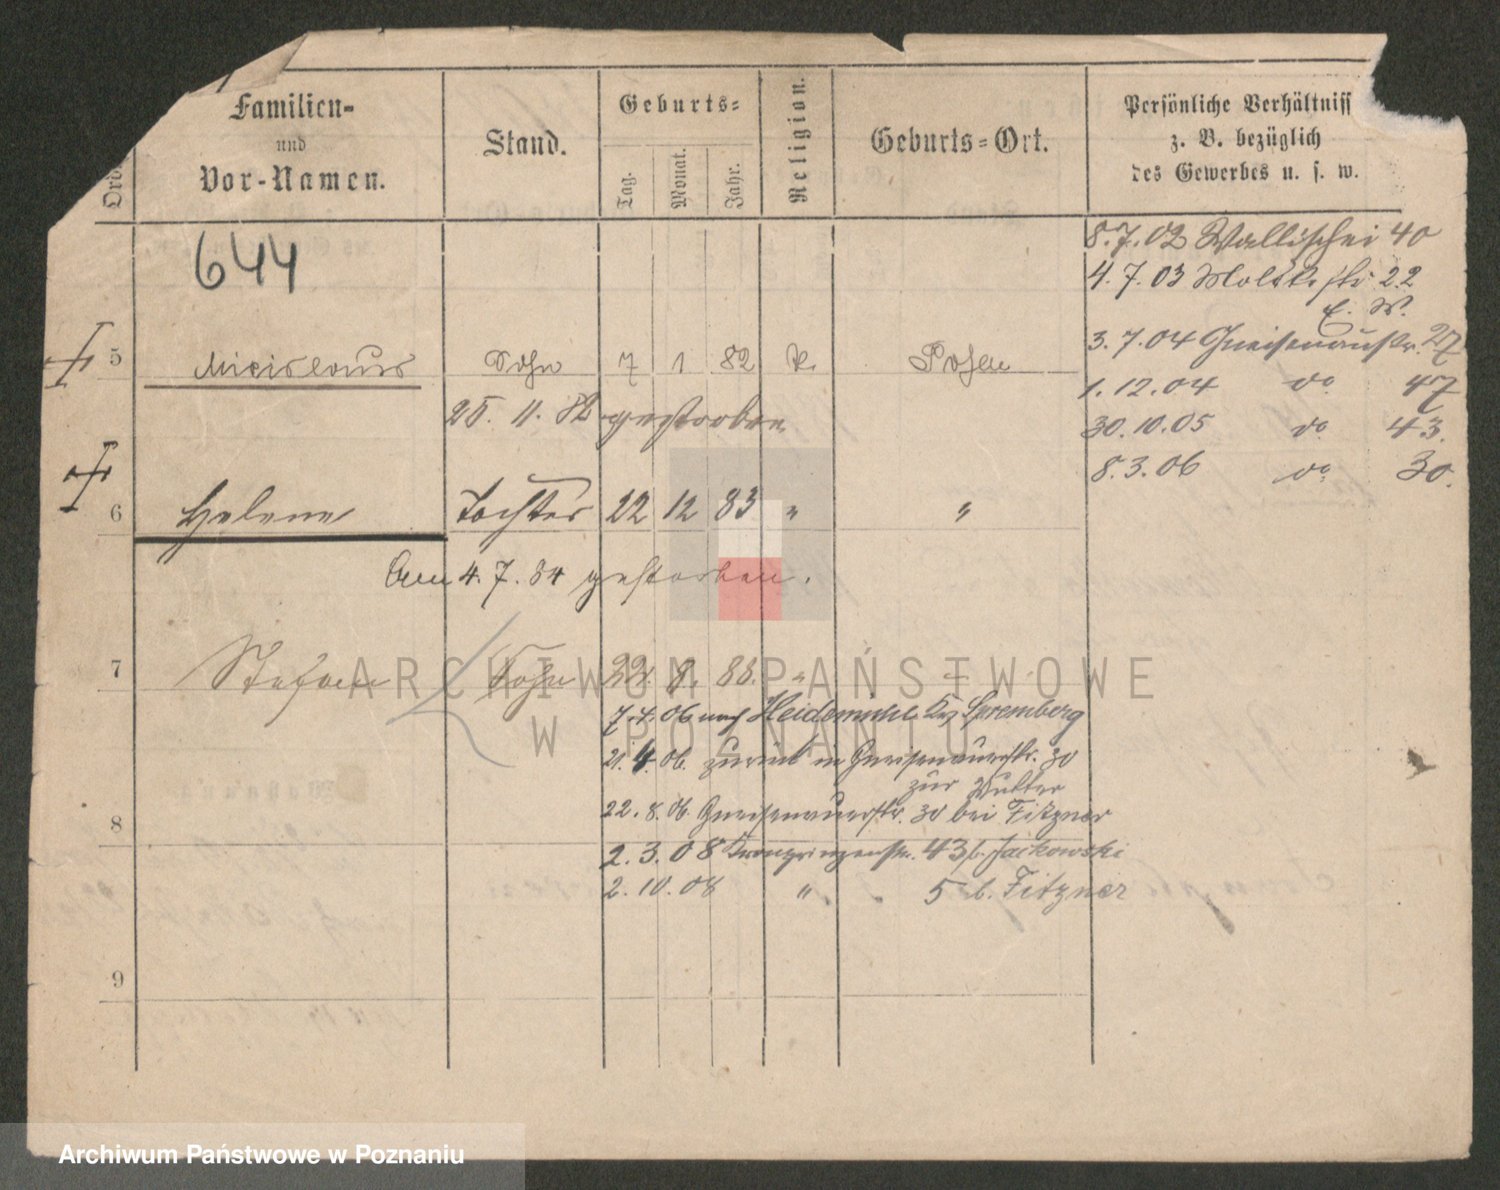 Familien-
und
Vor-Namen.
Stand.
Geburts-
Tag.
Monat.
Jahr.
Religion.
Geburts-Ort.
Persönliche Verhältniss
z. B. bezüglich
des Gewerbes u. s. w.
Ord
644
8.7.02 Wallischei 40
4.7.03 Moltkestr. 22
E. W.
3.7.04 Gneisenaustr. 27
1.12.04 do 47
30.10.05 do 43.
8.3.06 do 30.
5 Miecislaus Sohn 7 1 82 K. Posen
25. 11. 82 gestorben
6 Helene Tochter 22 12 83 " "
Am 4. 7. 84 gestorben.
7 Stefan Sohn 22. 8. 88. "
7.4.06 nach Heidemühl Krs Spremberg
21.4.06. zurück in Gneisenaustr. 30
zur Mutter
22.8.06. Gneisenaustr. 30 bei Fitzner
8
2.3.08 Kronprinzenstr. 43 b. Jackowski
2.10.08 " 5 b. Fitzner
9
ARCHIWUM PAŃSTWOWE
W POZNANIU
Archiwum Państwowe w Poznaniu